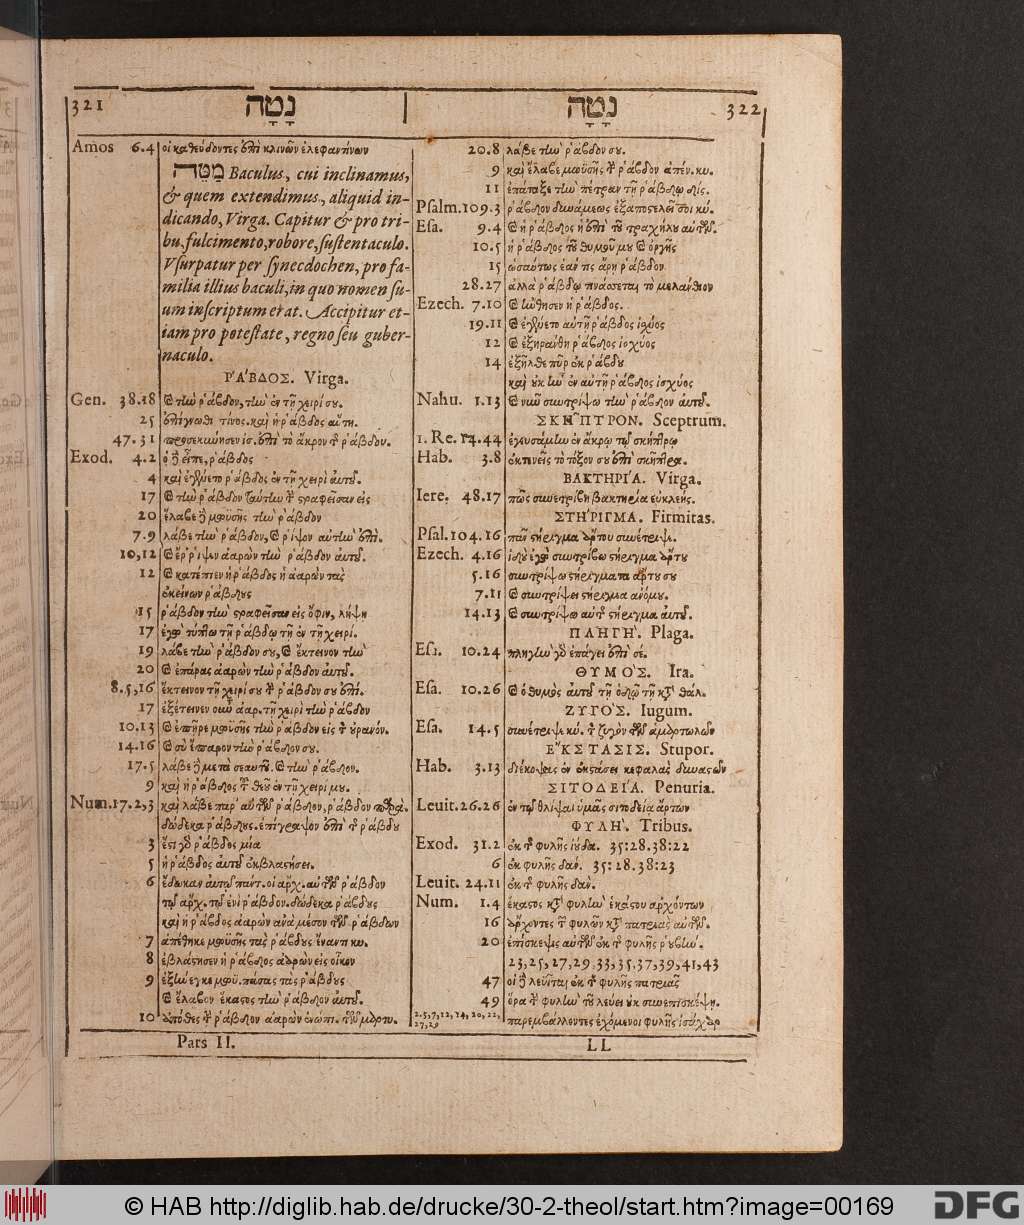 321 נָטָה נָטָה 322
Amos 6.4 οἱ καθεύδοντες ἐπὶ κλινῶν ἐλεφαντίνων
מַטֶּה Baculus, cui inclinamus,
& quem extendimus, aliquid in-
dicando, Virga. Capitur & pro tri-
bu, fulcimento, robore, ſuſtentaculo.
Vſurpatur per ſynecdochen, pro fa-
milia illius baculi, in quo nomen ſu-
um inſcriptum erat. Accipitur et-
iam pro poteſtate, regno ſeu guber-
naculo.
ΡΑ῎ΒΔΟΣ. Virga.
Gen. 38.18 καὶ τὴν ῥάβδον, τὴν ἐν τῇ χειρί σου.
25 ἐπίγνωθι τίνος. καὶ ἡ ῥάβδος αὕτη.
47.31 προσεκύνησεν ἰσ. ἐπὶ τὸ ἄκρον τ῀ ῥάβδου.
Exod. 4.2 ὁ δὲ εἶπε, ῥάβδος
4 καὶ ἐγένετο ῥάβδος ἐν τῇ χειρὶ αὐτοῦ.
17 καὶ τὴν ῥάβδον ταύτην τ῀ στραφεῖσαν εἰς
20 ἔλαβε δὲ μωϋσῆς τὴν ῥάβδον
7.9 λάβε τὴν ῥάβδον, καὶ ῥίψον αὐτὴν ἐπὶ.
10,12 καὶ ἔῤῥιψεν ἀαρὼν τὴν ῥάβδον αὐτοῦ.
12 καὶ κατέπιεν ἡ ῥάβδος ἡ ἀαρὼν τὰς
ἐκείνων ῥάβδους
15 ῥάβδον τὴν στραφεῖσαν εἰς ὄφιν, λήψῃ
17 ἐγὼ τύπτω τῇ ῥάβδῳ τῇ ἐν τῇ χειρί.
19 λάβε τὴν ῥάβδον σου, καὶ ἔκτεινον τὴν
20 καὶ ἐπάρας ἀαρὼν τὴν ῥάβδον αὐτοῦ.
8.5,16 ἔκτεινον τῇ χειρί σου τ῀ ῥάβδον σου ἐπί.
17 ἐξέτεινεν οὖν ἀαρ. τῇ χειρὶ τὴν ῥάβδον
10.13 καὶ ἐπῆρε μωϋσῆς τὴν ῥάβδον εἰς τ῀ οὐρανόν.
14.16 καὶ σὺ ἔπαρον τὴν ῥάβδον σου.
17.5 λάβε δὲ μετὰ σεαυτοῦ. καὶ τὴν ῥάβδον.
9 καὶ ἡ ῥάβδος τ῀ θεοῦ ἐν τῇ χειρί μου.
Num. 17.2,3 καὶ λάβε παρ' αὐτῶν ῥάβδον, ῥάβδον
δώδεκα ῥάβδους. ἐπίγραψον ἐπὶ τ῀ ῥάβδου
3 ἔστι γὰρ ῥάβδος μία
5 ἡ ῥάβδος αὐτοῦ ἐκβλαστήσει.
6 ἔδωκαν αὐτῷ πάντ. οἱ ἄρχ. αὐτῶν ῥάβδον
τῷ ἄρχ. τῷ ἑνὶ ῥάβδον. δώδεκα ῥάβδους
καὶ ἡ ῥάβδος ἀαρὼν ἀνὰ μέσον τῶν ῥάβδων
7 ἀπέθηκε μωϋσῆς τὰς ῥάβδους ἔναντι κυ.
8 ἐβλάστησεν ἡ ῥάβδος ἀαρὼν εἰς οἶκον
9 ἐξήνεγκε μωϋ. πάσας τὰς ῥάβδους
καὶ ἔλαβον ἕκαστος τὴν ῥάβδον αὐτοῦ.
10 ἀπόθες τ῀ ῥάβδον ἀαρὼν ἐνώπι. τῶν μαρτυ.
Pars II.
20.8 λάβε τὴν ῥάβδον σου.
9 καὶ ἔλαβε μωϋσῆς τ῀ ῥάβδον ἀπέν. κυ.
11 ἐπάταξε τὴν πέτραν τῇ ῥάβδῳ δίς.
Pſalm. 109.3 ῥάβδον δυνάμεως ἐξαποστελεῖ σοι κύ.
Eſa. 9.4 καὶ ἡ ῥάβδος ἡ ἐπὶ τοῦ τραχήλου αὐτῶν.
10.5 ἡ ῥάβδος τοῦ θυμοῦ μου καὶ ὀργῆς
15 ὡσαύτως ἐάν τις ἄρῃ ῥάβδον
28.27 ἀλλὰ ῥάβδῳ τινάσσεται τὸ μελάνθιον
Ezech. 7.10 καὶ ἤνθησεν ἡ ῥάβδος.
19.11 καὶ ἐγένετο αὐτῇ ῥάβδος ἰσχύος
12 καὶ ἐξηράνθη ῥάβδος ἰσχύος
14 ἐξῆλθε πῦρ ἐκ ῥάβδου
καὶ οὐκ ἦν ἐν αὐτῇ ῥάβδος ἰσχύος
Nahu. 1.13 καὶ νῦν συντρίψω τὴν ῥάβδον αὐτοῦ.
ΣΚΗ῀ΠΤΡΟΝ. Sceptrum.
1. Re. 14.44 ἐγευσάμην ἐν ἄκρῳ τῷ σκήπτρῳ
Hab. 3.8 ἐκτενεῖς τὸ τόξον σου ἐπὶ σκῆπτρα.
ΒΑΚΤΗΡΊΑ. Virga.
Iere. 48.17 πῶς συνετρίβη βακτηρία εὐκλεής.
ΣΤΗΡΙΓΜΑ. Firmitas.
Pſal. 104.16 πᾶν στήριγμα ἄρτου συνέτριψε.
Ezech. 4.16 ἰδοὺ ἐγὼ συντρίβω στήριγμα ἄρτου
5.16 συντρίψω στήριγμα ἄρτου σου
7.11 καὶ συντρίψει στήριγμα ἀνόμου.
14.13 καὶ συντρίψω αὐτ῀ στήριγμα ἄρτου.
ΠΛΗΓΗ`. Plaga.
Eſi. 10.24 πληγὴν γὰρ ἐπάγει ἐπὶ σέ.
ΘΥΜΟ`Σ. Ira.
Eſa. 10.26 καὶ ὁ θυμὸς αὐτοῦ τῇ ὁδῷ τῇ κατ̀ θάλ.
ΖΥΓΟ`Σ. Iugum.
Eſa. 14.5 συνέτριψε κύ. τ῀ ζυγὸν τῶν ἁμαρτωλῶν
Ε῎ΚΣΤΑΣΙΣ. Stupor.
Hab. 3.13 διέκοψας ἐν ἐκστάσει κεφαλὰς δυναστῶν
ΣΙΤΟΔΕΊΑ. Penuria.
Leuit. 26.26 ἐν τῷ θλίψαι ὑμᾶς σιτοδείᾳ ἄρτων
ΦΥΛΗ`. Tribus.
Exod. 31.2 ἐκ τ῀ φυλῆς ἰούδα. 35:28.38:22
6 ἐκ φυλῆς δάν. 35:28.38:23
Leuit. 24.11 ἐκ τ῀ φυλῆς δάν.
Num. 1.4 ἕκαστος κατ̀ φυλὴν ἑκάστου ἀρχόντων
16 ἄρχοντες τ῀ φυλῶν κατ̀ πατριὰς αὐτῶν.
20 ἐπίσκεψις αὐτῶν ἐκ τ῀ φυλῆς ῥουβήν.
23,25,27,29,33,35,37,39,41,43
47 οἱ δὲ λευῖται ἐκ τ῀ φυλῆς πατριᾶς
49 ὅρα τ῀ φυλὴν τοῦ λευεὶ οὐκ συνεπισκέψῃ.
2.5,7,12,14,20,22,27,29 παρεμβάλλοντες ἐχόμενοι φυλῆς ἰσάχαρ
LL
© HAB http://diglib.hab.de/drucke/30-2-theol/start.htm?image=00169
DFG